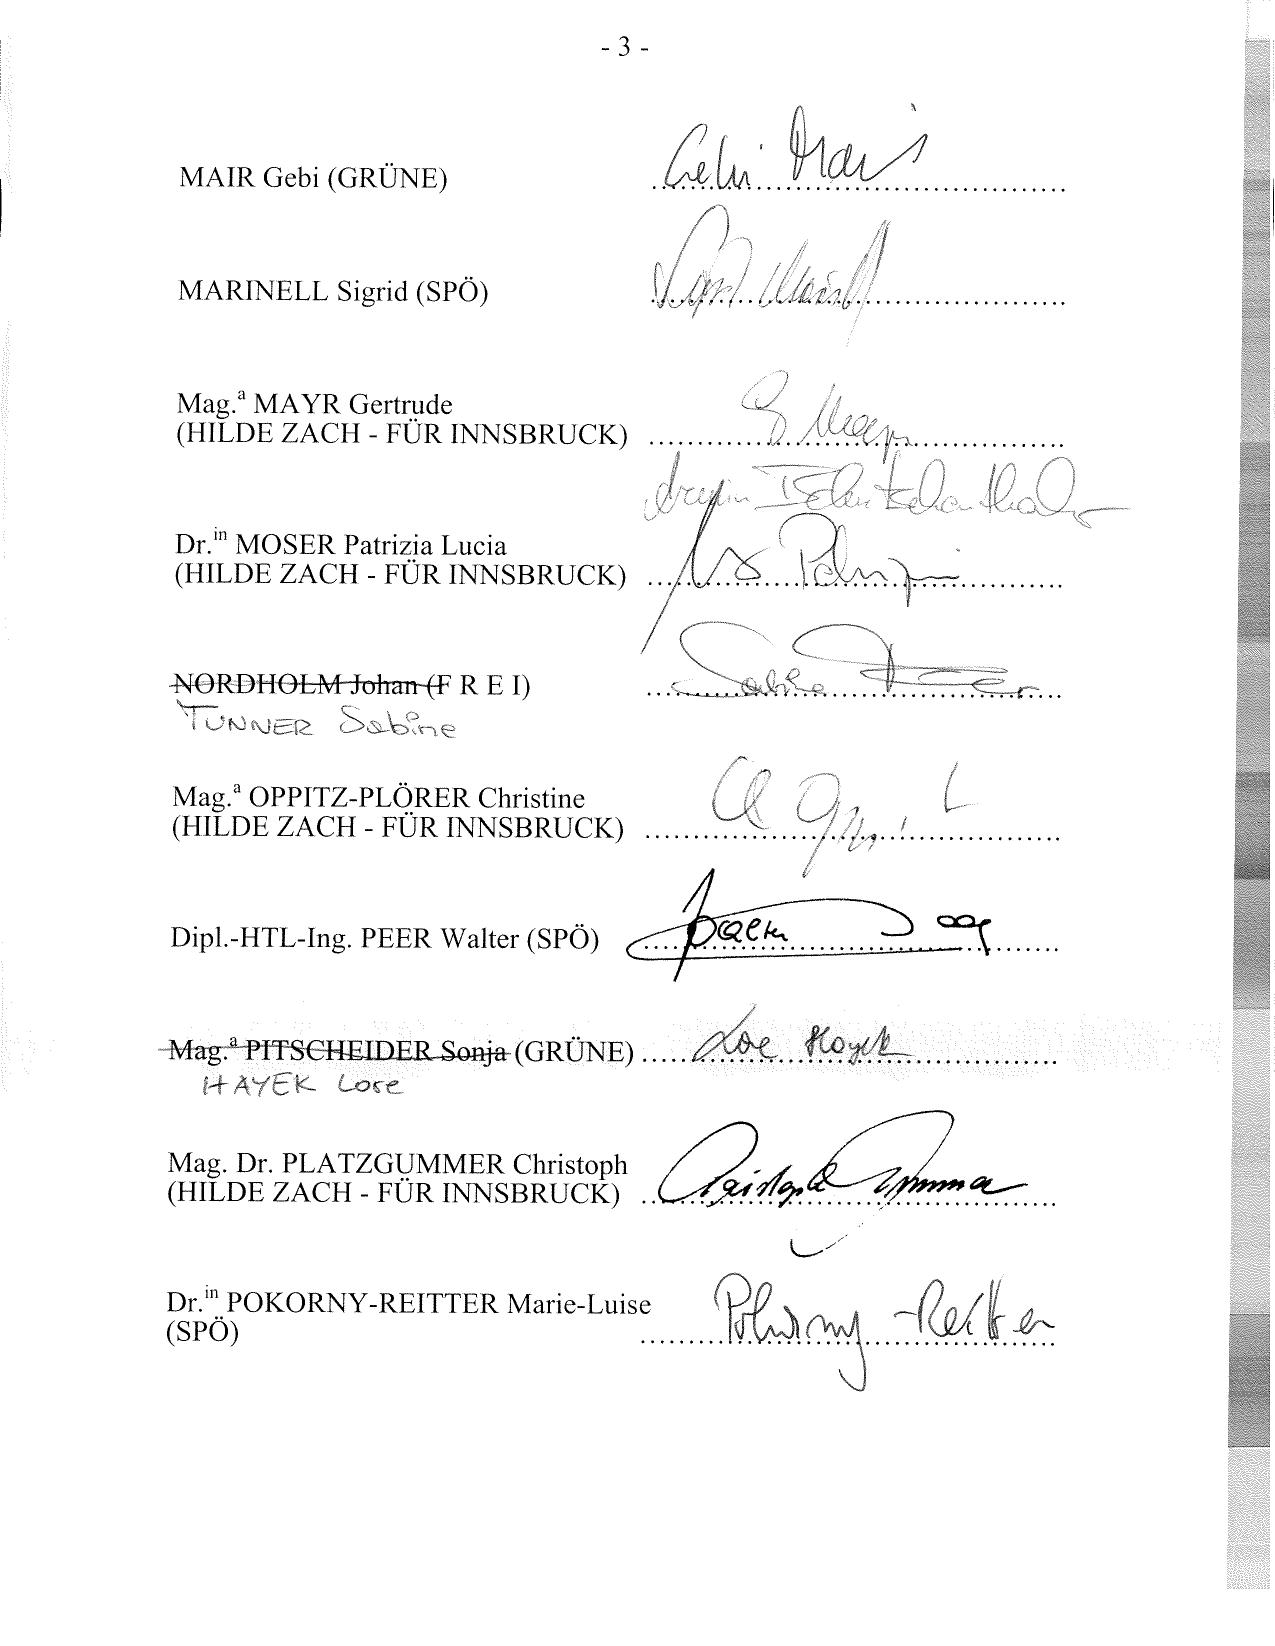 - 3 -
MAIR Gebi (GRÜNE) Gebi Mair
MARINELL Sigrid (SPÖ)
Mag.ª MAYR Gertrude
(HILDE ZACH - FÜR INNSBRUCK) G Mayr
Dr.in MOSER Patrizia Lucia
(HILDE ZACH - FÜR INNSBRUCK)
NORDHOLM Johan (F R E I) Sabine
TUNNER Sabine
Mag.ª OPPITZ-PLÖRER Christine
(HILDE ZACH - FÜR INNSBRUCK)
Dipl.-HTL-Ing. PEER Walter (SPÖ)
Mag.ª PITSCHEIDER Sonja (GRÜNE) Lore Hayek
HAYEK Lore
Mag. Dr. PLATZGUMMER Christoph
(HILDE ZACH - FÜR INNSBRUCK) Christoph
Dr.in POKORNY-REITTER Marie-Luise
(SPÖ) Pokorny-Reitter